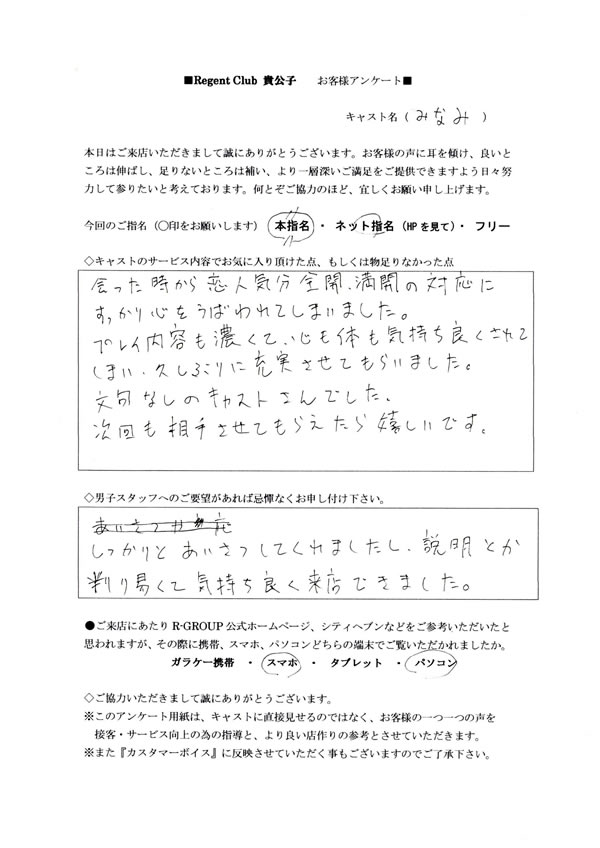 ■Regent Club 貴公子　お客様アンケート■
キャスト名（みなみ）
本日はご来店いただきまして誠にありがとうございます。お客様の声に耳を傾け、良いと
ころは伸ばし、足りないところは補い、より一層深いご満足をご提供できますよう日々努
力して参りたいと考えております。何とぞご協力のほど、宜しくお願い申し上げます。
今回のご指名（〇印をお願いします） 本指名 ・ ネット指名（HPを見て）・ フリー
◇キャストのサービス内容でお気に入り頂けた点、もしくは物足りなかった点
会った時から恋人気分全開、満開の対応に
すっかり心をうばわれてしまいました。
プレイ内容も濃くて、心も体も気持ち良くされて
しまい、久しぶりに充実させてもらいました。
文句なしのキャストさんでした、
次回も相手させてもらえたら嬉しいです。
◇男子スタッフへのご要望があれば忌憚なくお申し付け下さい。
しっかりとあいさつしてくれましたし、説明とか
判り易くて気持ち良く来店できました。
●ご来店にあたり R-GROUP 公式ホームページ、シティヘブンなどをご参考いただいたと
思われますが、その際に携帯、スマホ、パソコンどちらの端末でご覧いただかれましたか。
ガラケー携帯 ・ スマホ ・ タブレット ・ パソコン
◇ご協力いただきまして誠にありがとうございます。
※このアンケート用紙は、キャストに直接見せるのではなく、お客様の一つ一つの声を
接客・サービス向上の為の指導と、より良い店作りの参考とさせていただきます。
※また『カスタマーボイス』に反映させていただく事もございますのでご了承下さい。